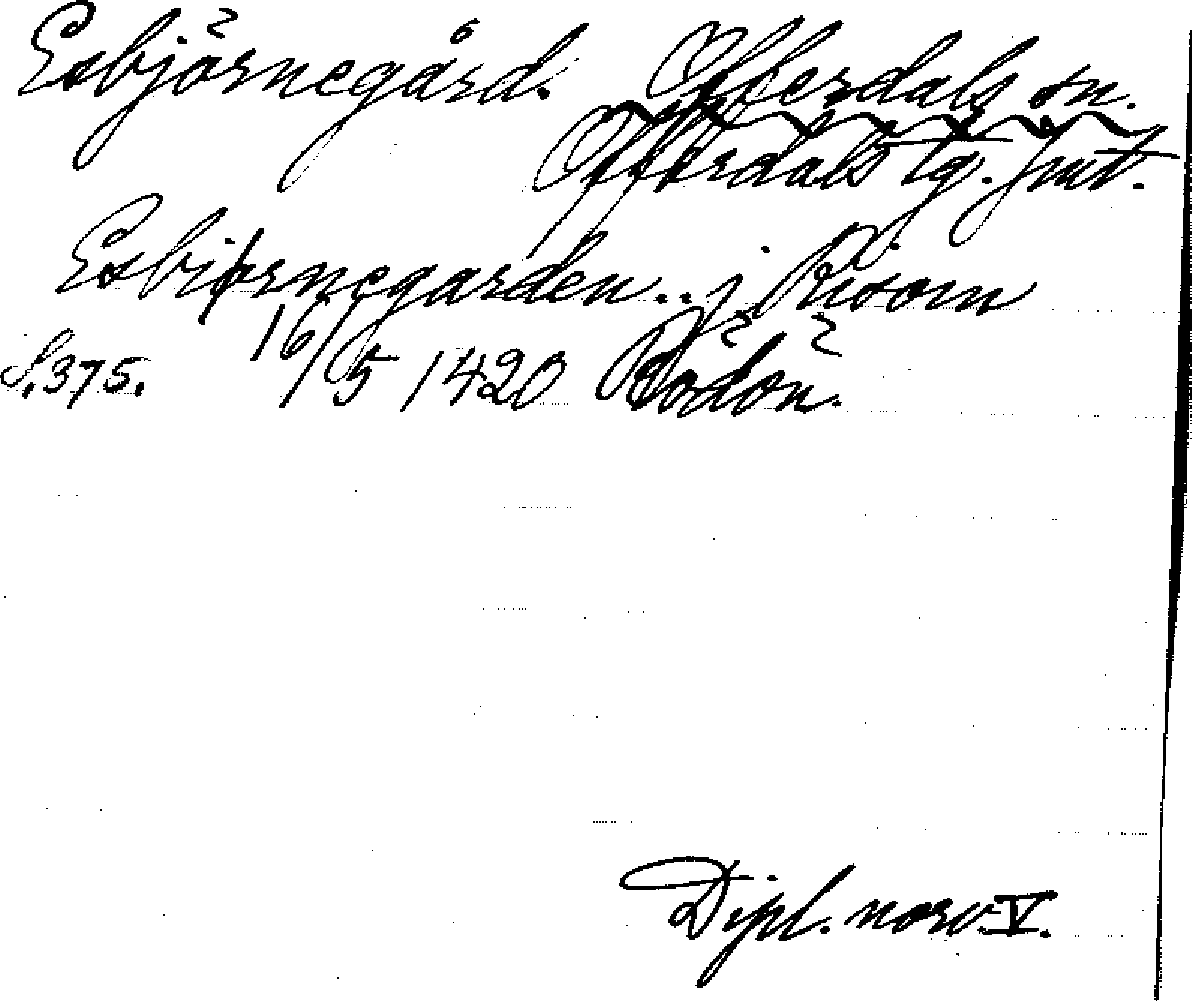 Esbjörnegård. Offerdals sn.
Offerdals tg. Jmt.
Esbiørnegarden .. j Risom
S. 375. 16/5 1420 Rödön.
Dipl. norv. V.